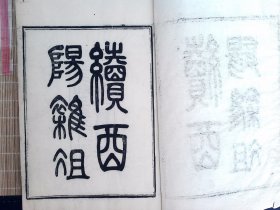 續酉
陽雜俎